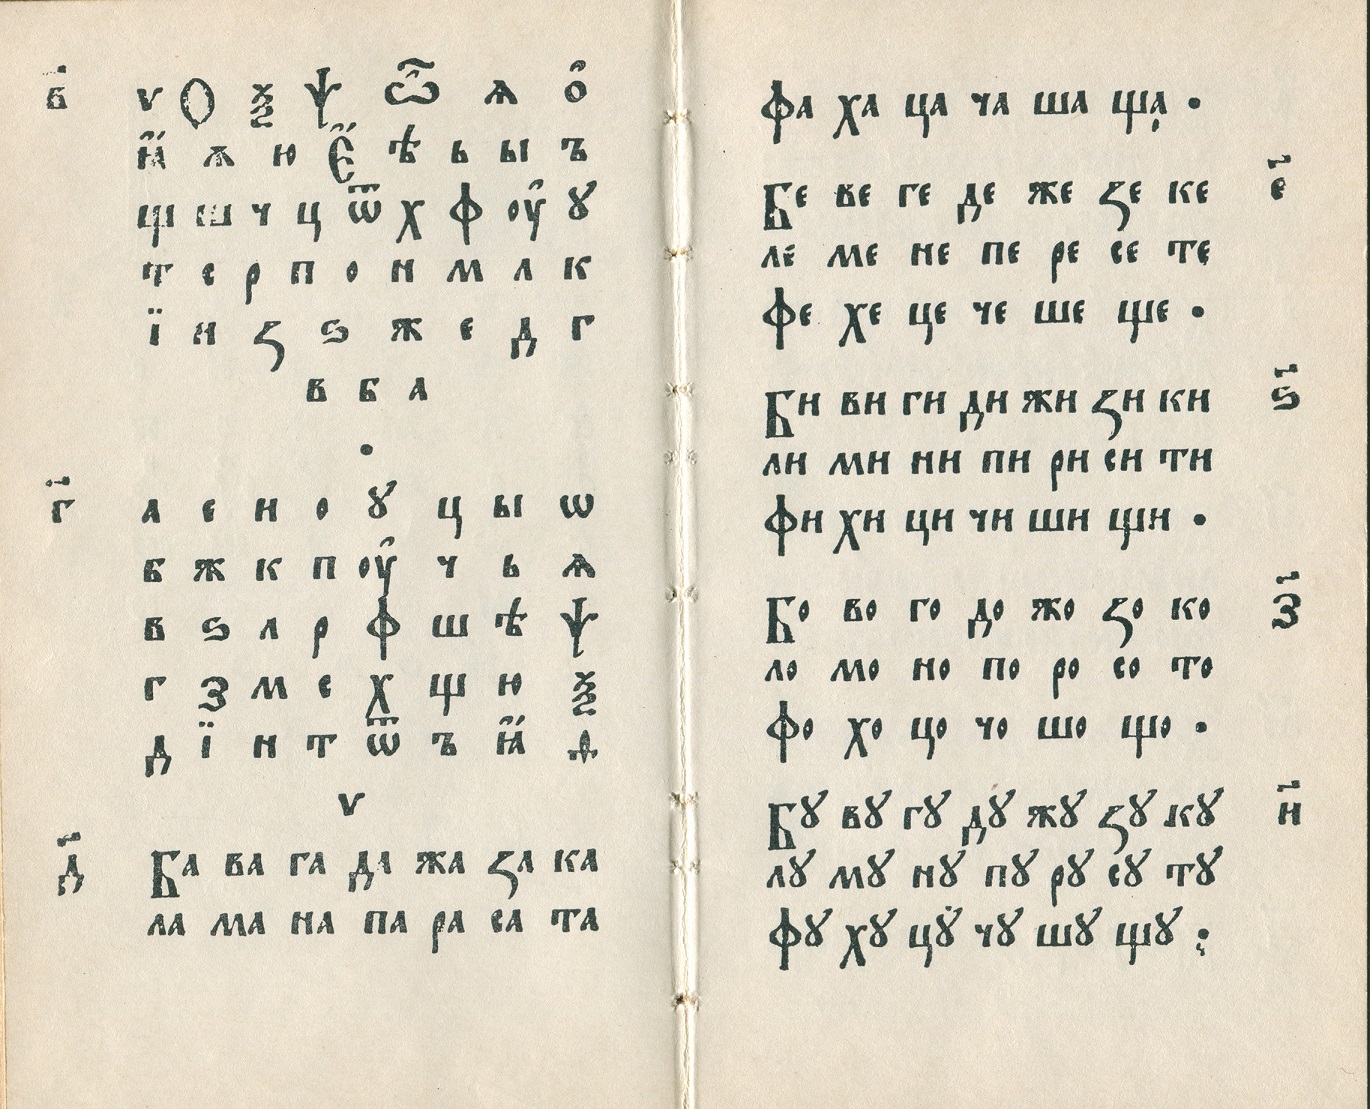 б҃ ѵ Ѻ ѯ ѱ Ѽ ѧ о҆
ꙗ҆̀ ѫ ю Є҆̀ ѣ ь ы ъ
щ ш ч ц ѿ х ф оу҆ ꙋ
т с р п о н м л к
ї и ꙁ ѕ ж е д г
в б а
•
г҃ а е и о ꙋ ц ы ѡ
б ж к п оу҆ ч ь ѧ
в ѕ л р ф ш ѣ ѱ
г З м с х щ ю ѯ
д ї н т ѿ ъ ꙗ҆̀ ѳ
ѵ
д҃ Ба ва га да жа ꙁа ка
ла ма на па ра са та
фа ха ца ча ша ща •
Бе ве ге де же ꙁе ке е҃
ле ме не пе ре се те
фе хе це че ше ще •
Би ви ги ди жи ꙁи ки ѕ҃
ли ми ни пи ри си ти
фи хи ци чи ши щи •
Бо во го до жо ꙁо ко З҃
ло мо но по ро со то
фо хо цо чо шо що •
Бꙋ вꙋ гꙋ дꙋ жꙋ ꙁꙋ кꙋ и҃
лꙋ мꙋ нꙋ пꙋ рꙋ сꙋ тꙋ
фꙋ хꙋ цꙋ чꙋ шꙋ щꙋ •